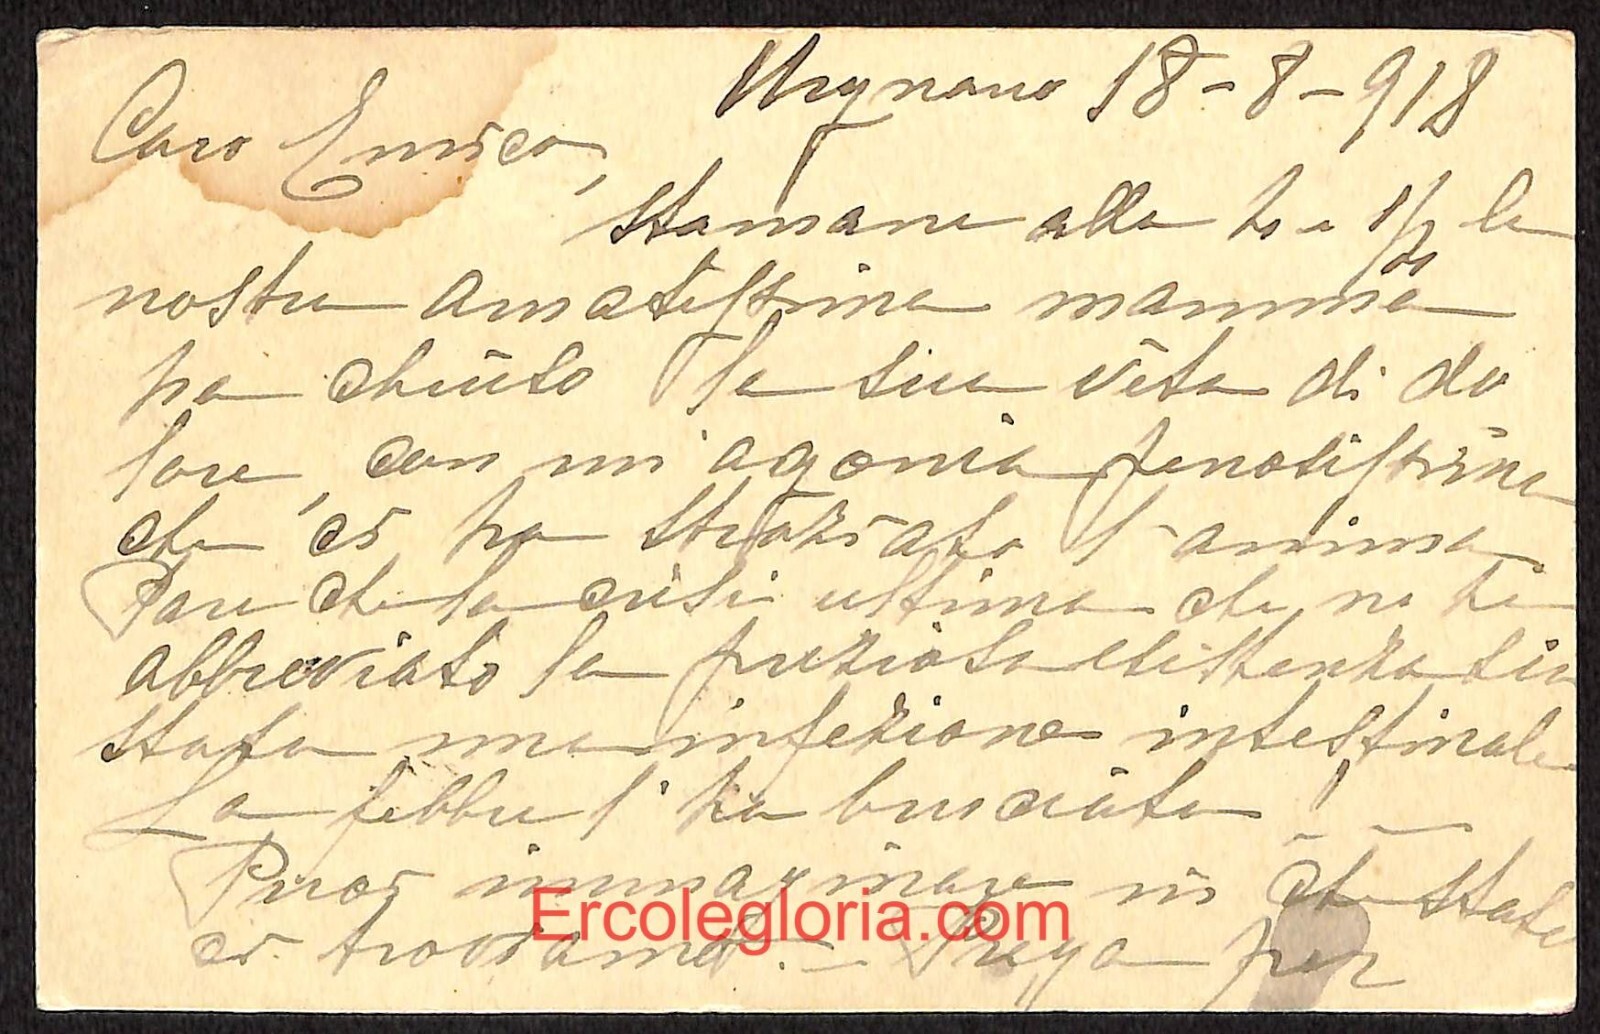 Urgnano 18-8-918
Caro Enrico,
Stamane alle tre e 1/2 la
nostra amatissima mamma
ha chiuso la sua vita di do
lore, con un'agonia penosissima
che ci ha straziato l'anima
Pare che la crisi ultima che ne ha
abbreviato la preziosa esistenza sia
stata una infezione intestinale
La febbre l'ha bruciata!
Puoi immaginare in che stato
ci troviamo. Prega per
Ercolegloria.com